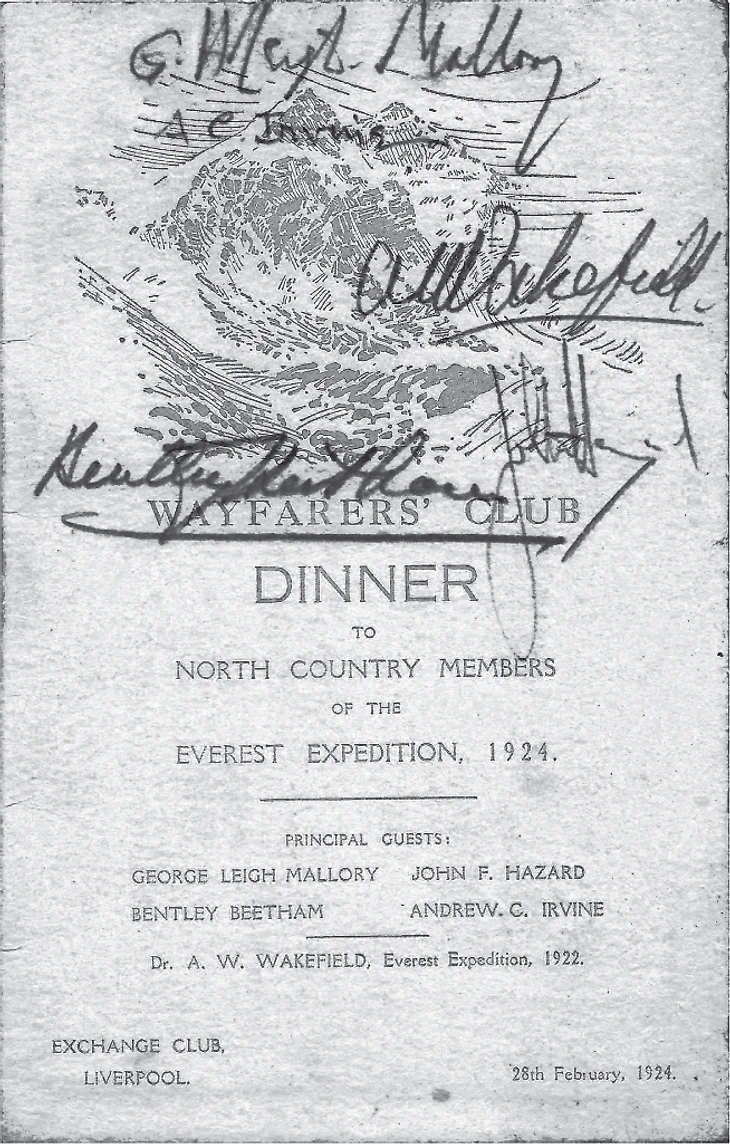 G. H. Leigh-Mallory
A C Irvine
A W Wakefield.
Bentley Beetham
WAYFARERS' CLUB
DINNER
TO
NORTH COUNTRY MEMBERS
OF THE
EVEREST EXPEDITION, 1924.
PRINCIPAL GUESTS:
GEORGE LEIGH MALLORY JOHN F. HAZARD
BENTLEY BEETHAM ANDREW. C. IRVINE
Dr. A. W. WAKEFIELD, Everest Expedition, 1922.
EXCHANGE CLUB,
LIVERPOOL.
28th February, 1924.